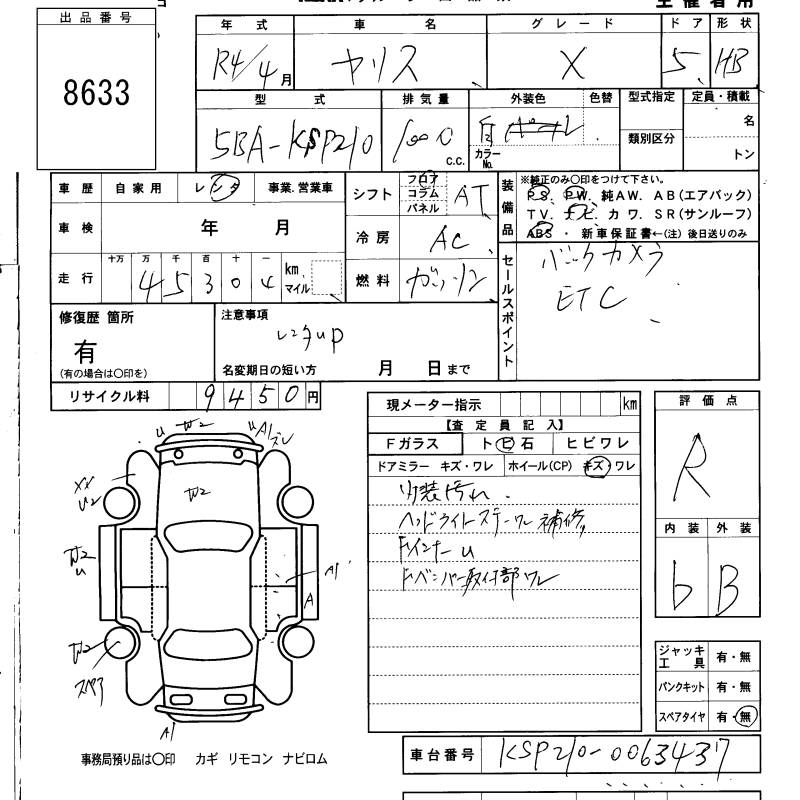 出品番号
8633
年式 車名 グレード ドア 形状
R4/4月 ヤリス X 5 HB
型式 排気量 外装色 色替 型式指定 定員・積載
5BA-KSP210 1000 c.c. 白 カラーNo. 類別区分 名 トン
車歴 自家用 レンタ 事業.営業車
車検 年 月
走行 十万 万 千 百 十 一 km マイル
45304
シフト フロア コラム パネル AT
冷房 AC
燃料 ガソリン
装備品
※純正のみ〇印をつけて下さい。
PS. PW. 純AW. AB(エアバック)
TV. ナビ. カワ. SR(サンルーフ)
ABS ・ 新車保証書←(注) 後日送りのみ
セールスポイント
バックカメラ
ETC
修復歴 箇所
有
(有の場合は〇印を)
注意事項
レンタup
名変期日の短い方 月 日まで
リサイクル料 9450円
現メーター指示 km
【査定員記入】
Fガラス トビ石 ヒビワレ
ドアミラー キズ・ワレ ホイール(CP) キズ・ワレ
内装汚れ
ヘッドライトステーワレ 補修
Fインナーu
Fバンパー取付部ワレ
評価点
R
内装 外装
b B
ジャッキ工具 有・無
パンクキット 有・無
スペアタイヤ 有・無
u W2 u A1 ズレ
XX
U2
W2
W2
u
A1
A
W2
スペア
A1
事務局預り品は〇印 カギ リモコン ナビロム
車台番号 KSP210-0063437